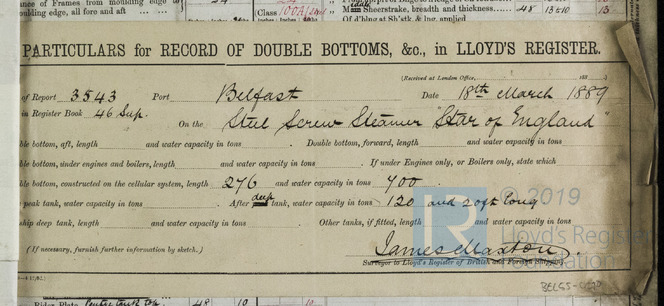 ance of Frames from moulding edge
moulding edge, all fore and aft
Class 100A1
Main Sheerstrake, breadth and thickness 48 13-10 13
Of d'bling at Sh'stk. & lng. applied
PARTICULARS for RECORD OF DOUBLE BOTTOMS, &c., in LLOYD'S REGISTER.
(Received at London Office, 188
of Report 3543 Port Belfast Date 18th March 1889
in Register Book 46 Sup.
On the Steel Screw Steamer "Star of England"
ble bottom, aft, length and water capacity in tons . Double bottom, forward, length and water capacity in tons
ble bottom, under engines and boilers, length and water capacity in tons . If under Engines only, or Boilers only, state which
ble bottom, constructed on the cellular system, length 276 and water capacity in tons 700 .
peak tank, water capacity in tons . After deep tank, water capacity in tons 120 and 20ft long
ship deep tank, length and water capacity in tons . Other tanks, if fitted, length and water capacity in tons
(If necessary, furnish further information by sketch.)
James Maxton
Surveyor to Lloyd's Register of British and Foreign Shipping.
© 2019
Lloyd's Register
Foundation